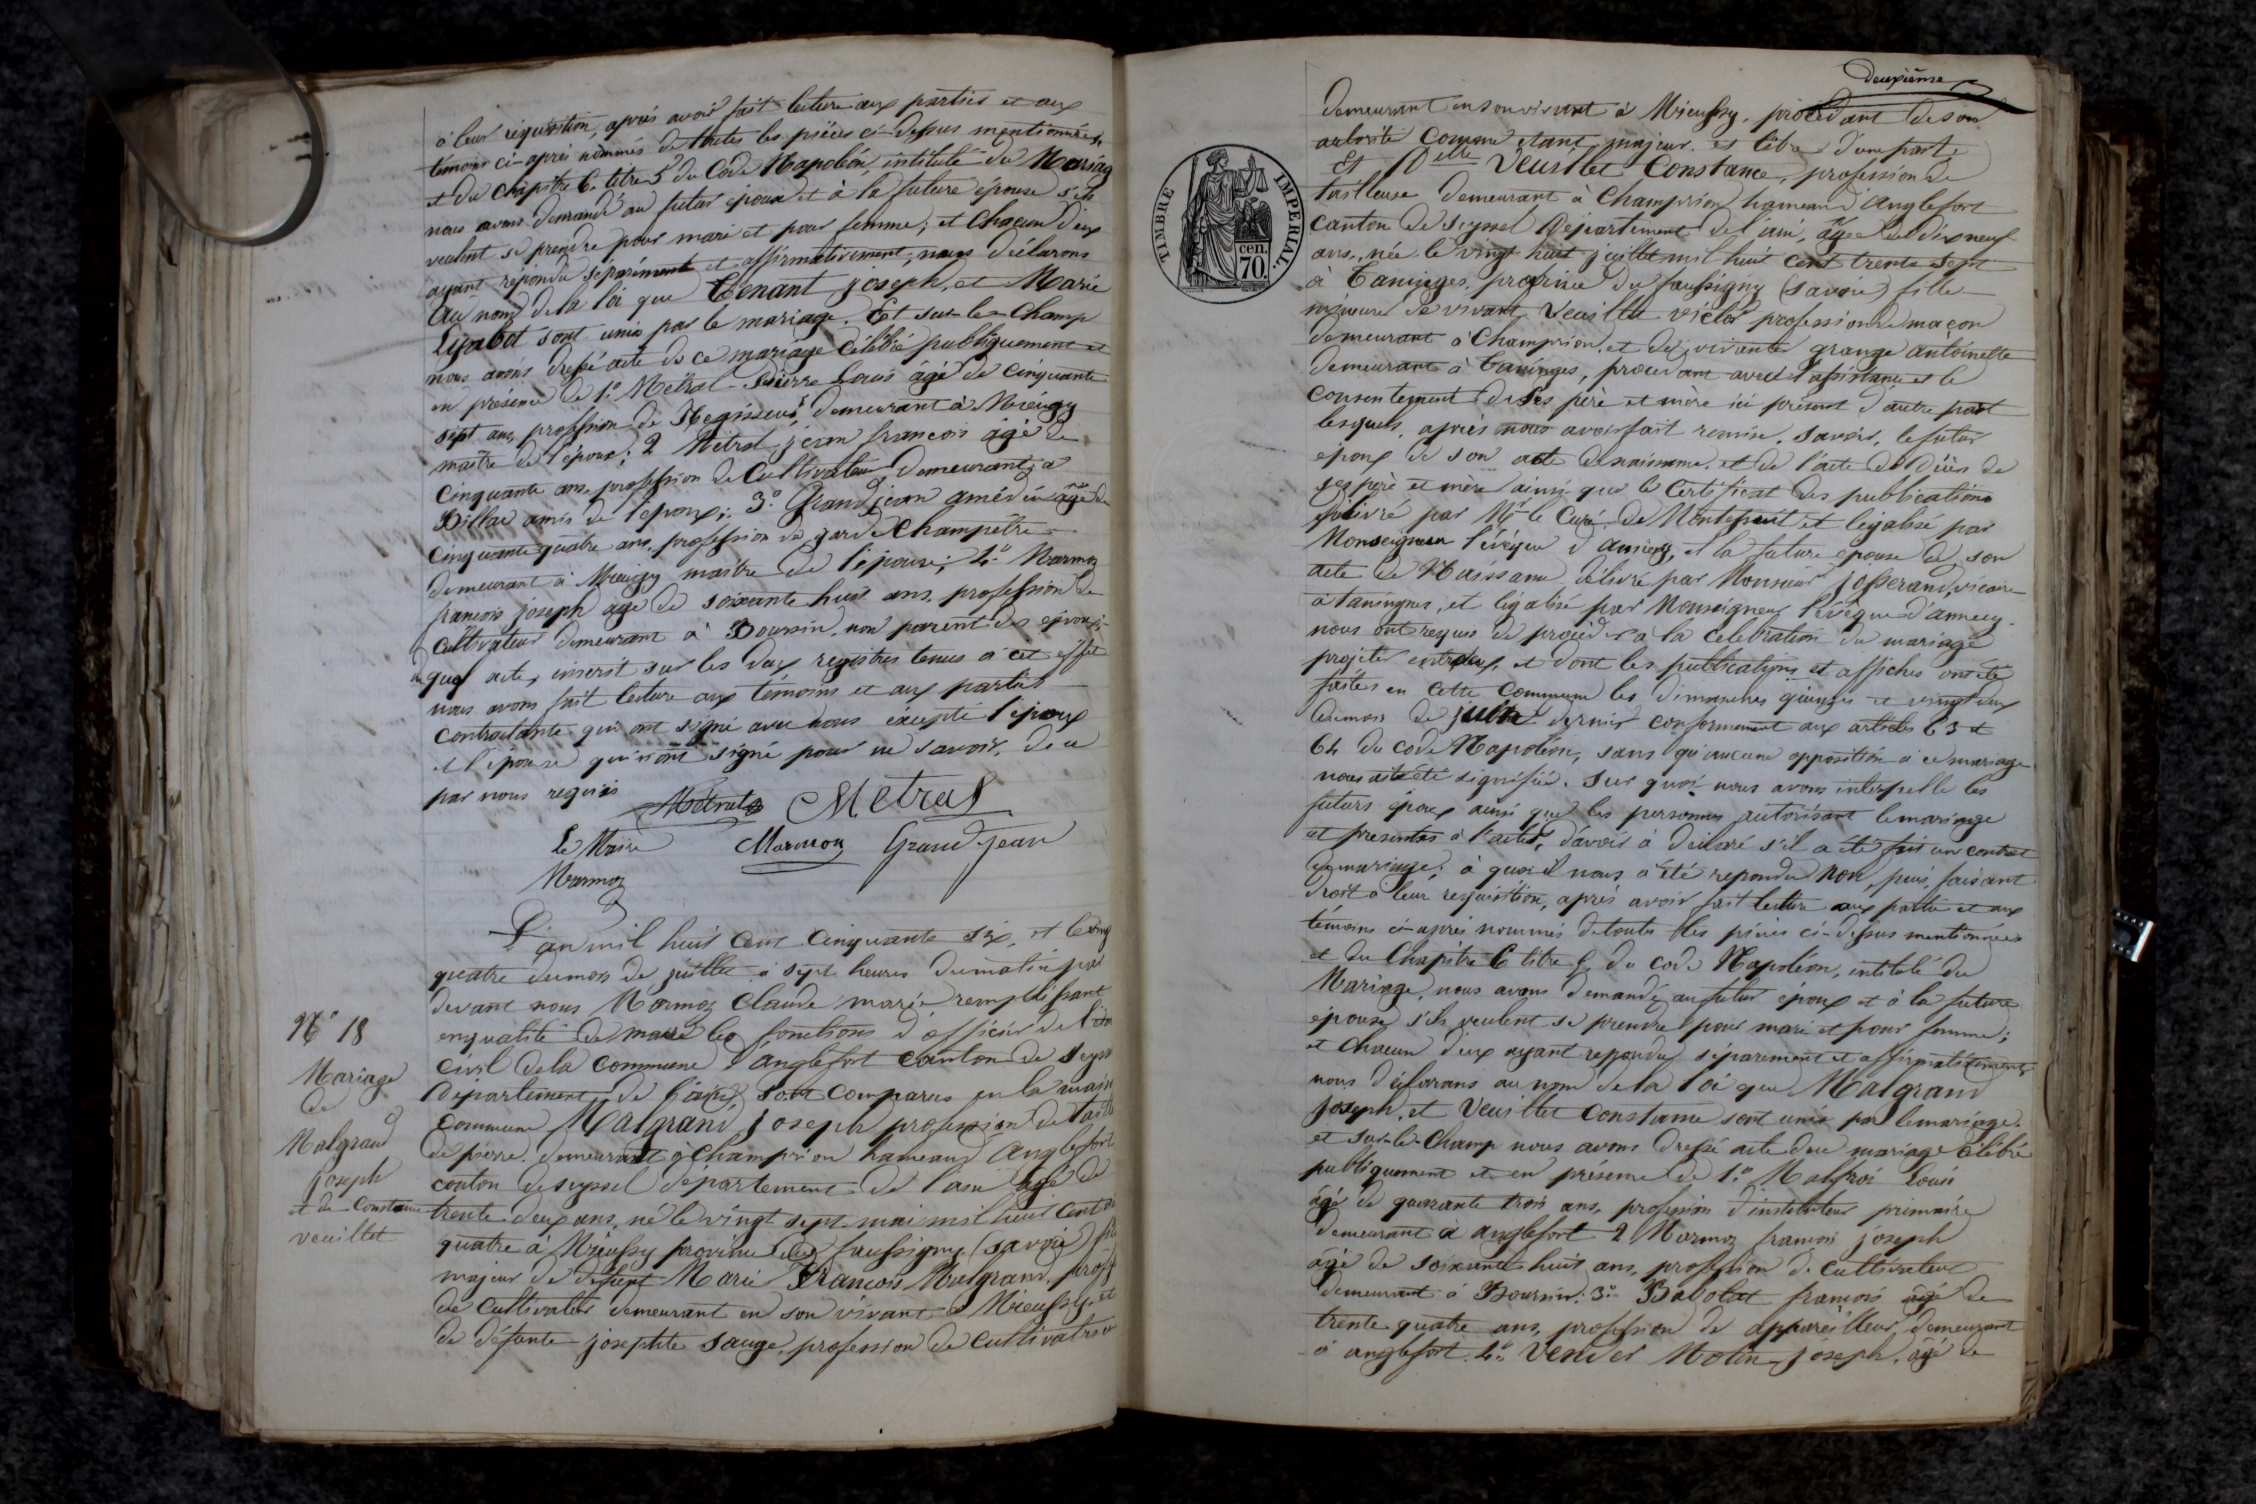 à leur réquisition, après avoir fait lecture aux parties et aux
témoins ci-après nommés de toutes les pièces ci-dessus mentionnées,
et du chapitre 6. titre 5 du Code Napoléon, intitulé du Mariag
nous avons demandé au futur époux et à la future épouse s'ils
veulent se prendre pour mari et pour femme; et chacun d'eux
ayant répondu séparément et affirmativement, nous déclarons
au nom de la loi que Tenant joseph, et Marie
Lyabot sont unis par le mariage. Et sur-le-Champ
nous avons dressé acte de ce mariage célébré publiquement et
en presence de 1.o Métral Pierre Louis âgé de cinquante
sept ans, profession de Regisseur, demeurant à Mieugy
maître de l'époux; 2 Métral jean françois âgé de
Cinquante ans, profession de Cultivateur demeurant à
Billac amis de l'époux; 3.o Grand jean amédée âgé de
Cinquante quatre ans, profession de garde Champêtre
demeurant à Mieugy maître de l'épouse; 4.o Marmoz
francois joseph âgé de soixante huit ans, profession de
Cultivateur demeurant à Boursin, non parent des époux;
du quel acte, inscrit sur les deux registres tenus à cet effet
nous avons fait lecture aux témoins et aux parties
contractante qui ont signé avec nous excepté l'époux
et l'épouse qui n'ont signé pour ne savoir, de ce
par nous requis
Métral Metral
Le Maire Marmoz Grand jean
Marmoz
L'an mil huit cent cinquante six, et le vingt
quatre du mois de juillet à sept heures du matin par
devant nous Marmoz Claude marie remplissant
en qualité de maire les fonctions d'officier de l'éta
civil de la commune d'anglefort canton de Seyss
département de l'ain, sont comparus en la maison
commune Malgrand joseph profession de taill
de pierre demeurant à Champrion hameau d'Anglefort
canton de seyssel département de l'ain âgé de
trente deux ans, né le vingt sept mai mil huit cent vi
quatre à Mieussy province du faussigny (savoie) fils
majeur de defunt Marie Francois Malgrand, prof
de Cultivateur demeurant en son vivant à Mieussy, et
de défunte josephte Sauge, profession de cultivatrice
N.o 18
Mariage
de
Malgrand
joseph
et de Constance
veuillet
deuxième
demeurant en son vivant à Mieussy, procédant de son
autorité comme étant majeur et libre d'une part
Et Delle Veuillet Constance, profession de
tailleuse demeurant à Champrion hameau d'Anglefort
canton de Seyssel Département de l'ain, âgée de dix neuf
ans, née le vingt huit juillet mil huit cent trente sept
à Taninges, province du faussigny (savoie) fille
mineure de vivant Veuillet victor profession de maçon
demeurant à Champrion, et de vivante grange antoinette
demeurant à Taninges, procedant avec l'assistance et le
consentement de ses père et mère ici présent d'autre part
lesquels, après nous avoir fait remise, savoir, le futur
epoux de son acte de naissance, et de l'acte de décès de
ses père et mère ainsi que le certificat des publications
délivré par Mr le Curé de et légalisé par
Monseigneur l'évêque d'annecy, et la future épouse de son
acte de Naissance délivré par Monsieur josserand, vicaire
à taninges, et légalisé par Monseigneur l'évêque d'annecy
nous ont requis de procéder à la célébration du mariage
projeté entr'eux, et dont les publications et affiches ont été
faites en cette commune les dimanches quinze et vingt deux
du mois de juin dernier conformement aux articles 63 et
64 du code Napoléon, sans qu'aucune opposition à ce mariage
nous ait été signifiée. Sur quoi nous avons interpellé les
futurs époux ainsi que les personnes autorisant le mariage
et presentes à l'acte, d'avoir à déclaré s'il a été fait un contrat
de mariage; à quoi il nous a été repondu non, puis faisant
droit à leur réquisition, après avoir fait lecture aux partie et aux
témoins ci-après nommés de toutes les pièces ci-dessus mentionnées
et du Chapitre 6 titre 5 du code Napoléon, intitulé du
Mariage, nous avons demandé au futur époux et à la future
épouse s'ils veulent se prendre pour mari et pour femme;
et chacun d'eux ayant repondu séparement et affirmativement
nous déclarons au nom de la loi que Malgrand
joseph, et Veuillet Constance sont unis par le mariage.
et sur-le-champ nous avons dressé acte de ce mariage célébré
publiquement et en présence de 1.o Malfroi Louis
âgé de quarante trois ans, profession d'instituteur primaire
demeurant à anglefort 2 Marmoz francois joseph
âgé de soixante huit ans, profession de cultivateur
demeurant à Boursin, 3.o Bavolat francois âgé de
trente quatre ans, profession de appareilleur demeurant
à anglefort. 4.o Venier Molin joseph, âgé de
TIMBRE IMPERIAL.
cen.
70.